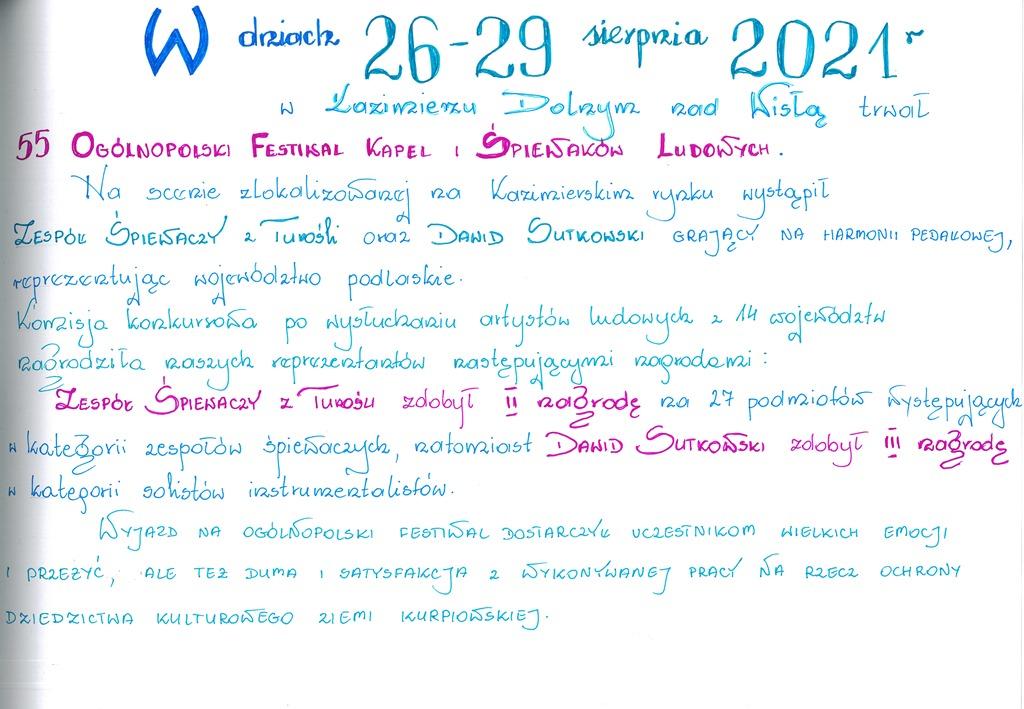 W dniach 26-29 sierpnia 2021 r
w Kazimierzu Dolnym nad Wisłą trwał
55 OGÓLNOPOLSKI FESTIWAL KAPEL I ŚPIEWAKÓW LUDOWYCH.
Na scenie zlokalizowanej na Kazimierskim rynku wystąpił
ZESPÓŁ ŚPIEWACZY z Turośli oraz DAWID SUTKOWSKI GRAJĄCY NA HARMONII PEDAŁOWEJ,
reprezentując województwo podlaskie.
Komisja konkursowa po wysłuchaniu artystów ludowych z 14 województw
nagrodziła naszych reprezentantów następującymi nagrodami:
ZESPÓŁ ŚPIEWACZY Z Turośli zdobył II nagrodę na 27 podmiotów występujących
w kategorii zespołów śpiewaczych, natomiast DAWID SUTKOWSKI zdobył III nagrodę
w kategorii solistów instrumentalistów.
WYJAZD NA OGÓLNOPOLSKI FESTIWAL DOSTARCZYŁ UCZESTNIKOM WIELKICH EMOCJI
I PRZEŻYĆ, ALE TEŻ DUMA I SATYSFAKCJA Z WYKONYWANEJ PRACY NA RZECZ OCHRONY
DZIEDZICTWA KULTUROWEGO ZIEMI KURPIOWSKIEJ.